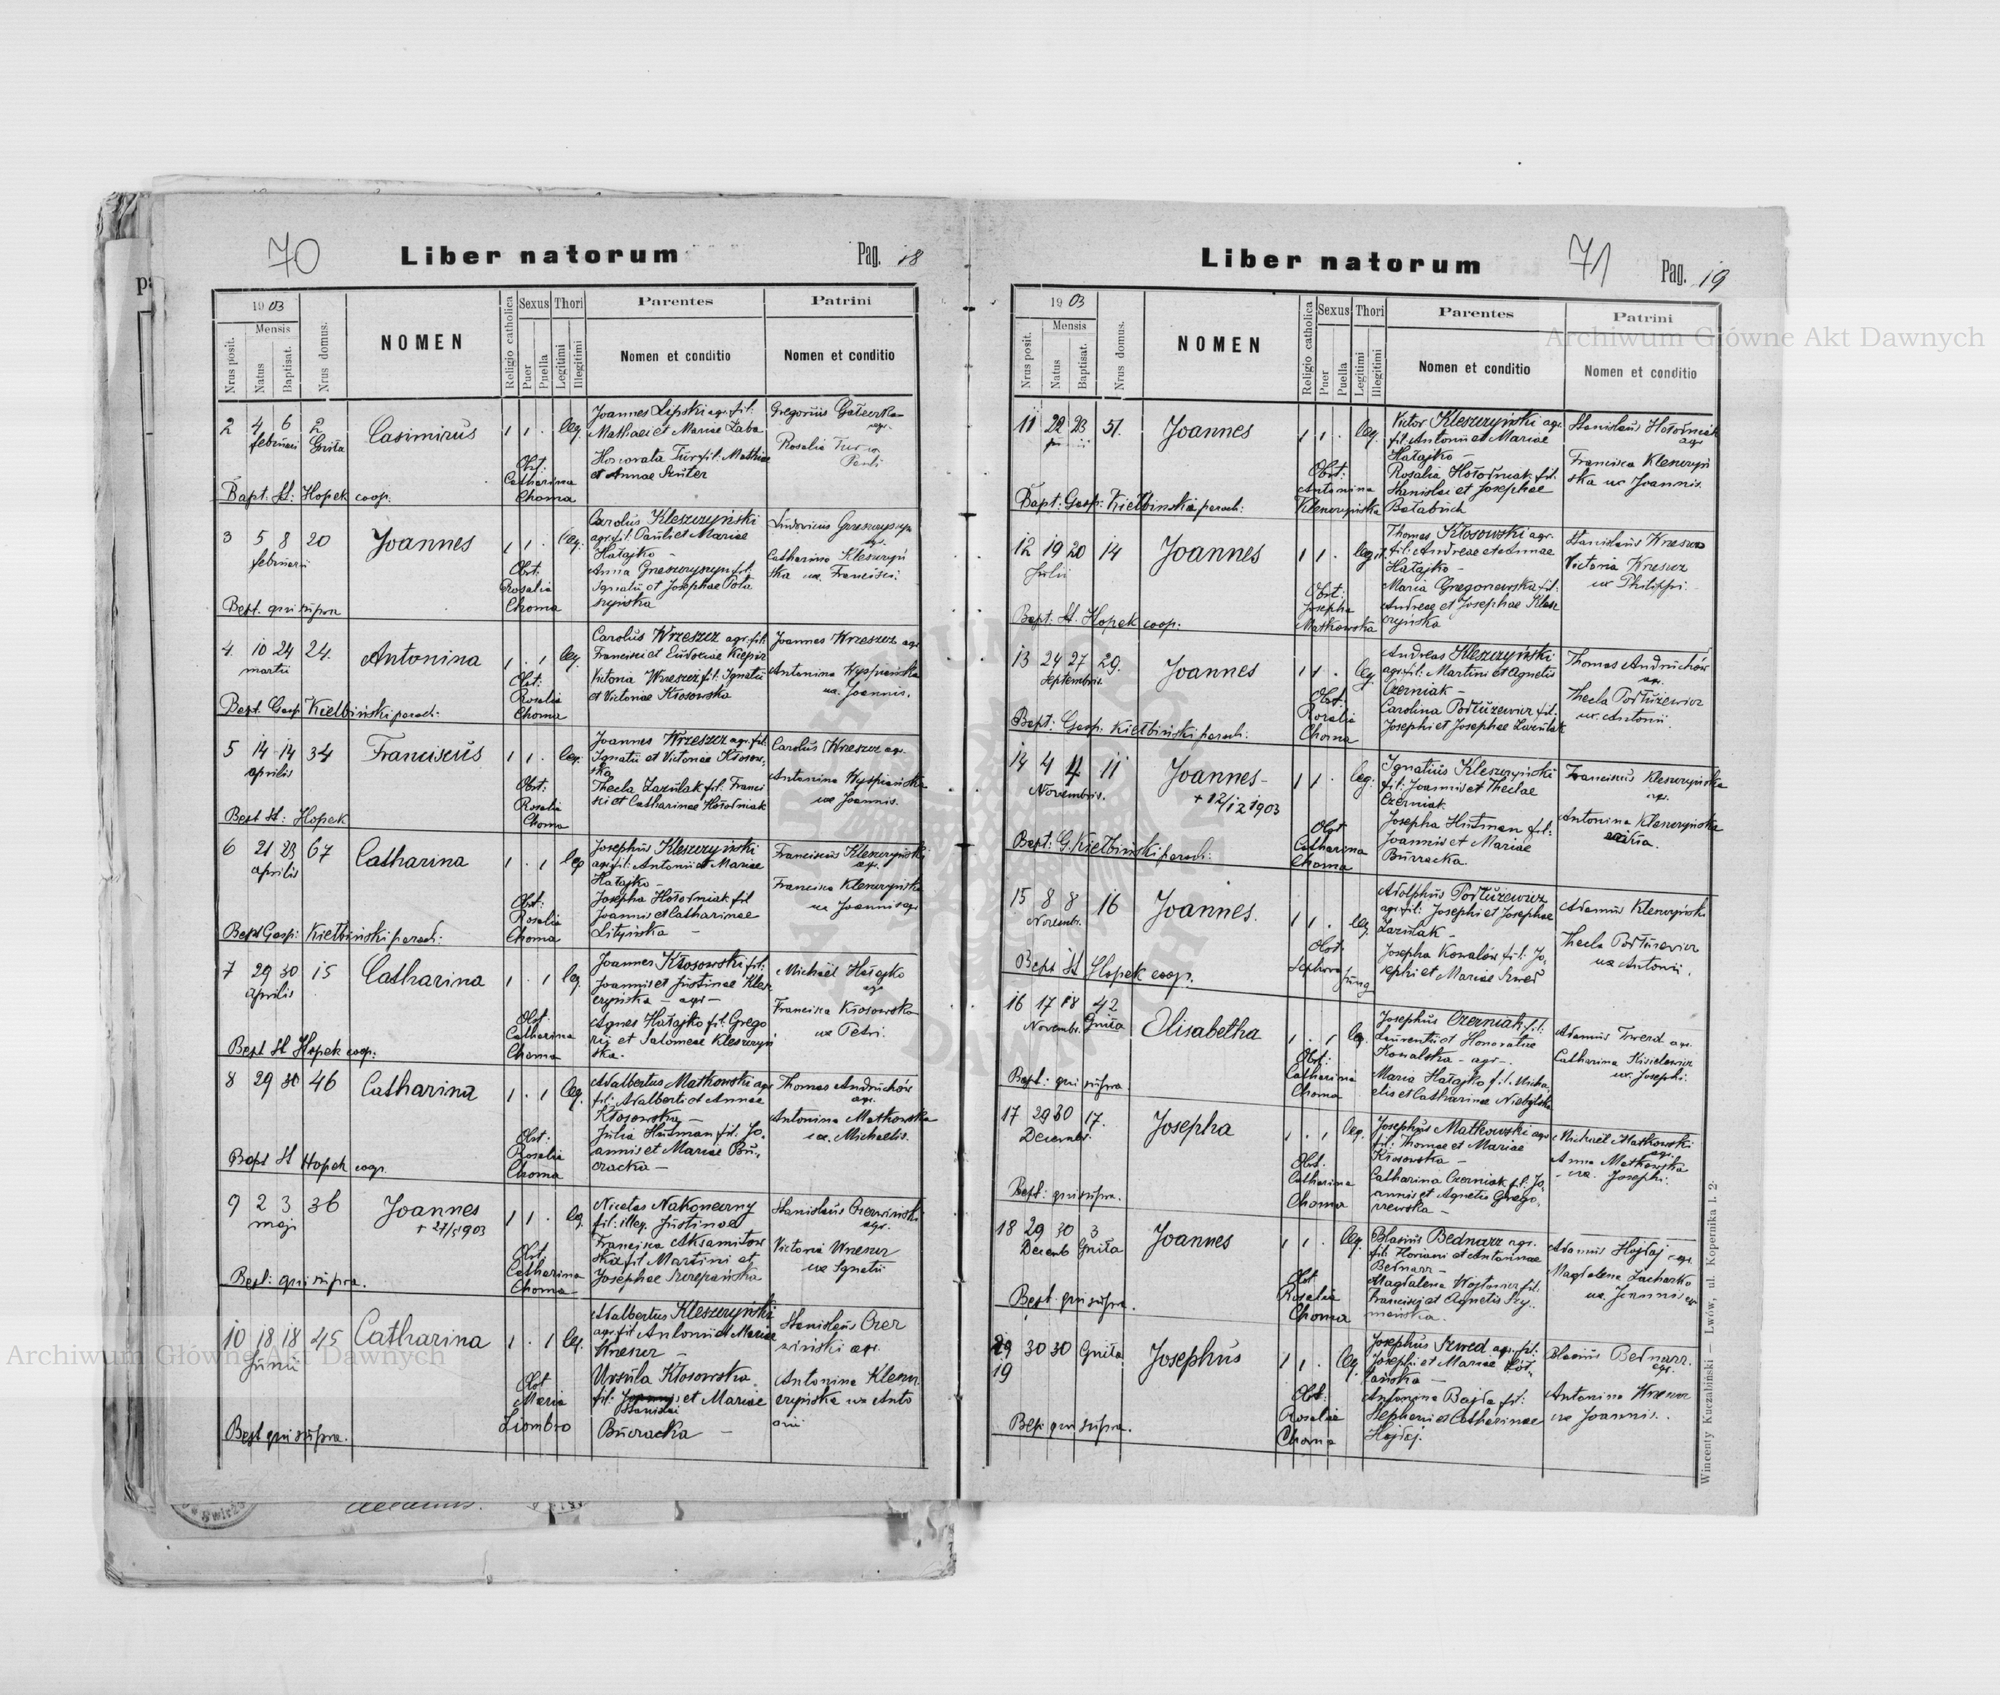 70
Liber natorum
Pag. 18
1903
Mensis
Nrus posit.
Natus
Baptisat.
Nrus domus.
NOMEN
Religio catholica
Sexus
Puer
Puella
Thori
Legitimi
Illegitimi
Parentes
Nomen et conditio
Patrini
Nomen et conditio
2 4 6 2 Casimirus 1 1 . leg.
februarii Gniła
Joannes Lipski agr. fil:
Mathaei et Mariae Żaba
Honorata Tur fil: Mathiae
et Annae Szuter
Gregorius
agr.
Rosalia
Obst:
Catharina
Choma
Bapt. St: Hopek coop.
3 5 8 20 Joannes 1 1 . leg.
februarii
Carolus Kleszczyński
agr. fil: Pauli et Mariae
Hałajko –
Anna Grzeszczyszyn fil:
Ignatii et Josephae Pota
szyńska
Ludovicus Grzeszczyszyn
agr.
Catharina Kleszczyń
ska ux. Francisci.
Obst:
Rosalia
Choma
Bapt. qui supra
4 10 24 24. Antonina 1 . 1 leg.
martii
Carolus Wrzeszcz agr. fil:
Francisci et Eudociae
Victoria Wrzeszcz fil: Ignatii
et Victoriae Kłosowska
Joannes Wrzeszcz agr
Antonina Wyspiańska
ux. Joannis.
Obst:
Rosalia
Choma
Bapt. Gasp. Kiełbiński paroch:
5 14 14 34 Franciscus 1 1 . leg.
aprilis
Joannes Wrzeszcz agr. fil.
Ignatii et Victoriae Kłosow-
ska
Thecla Zazulak fil. Franci
sci et Catharinae Hołodniak
Carolus Wrzeszcz agr.
Antonina Wyspiańska
ux Joannis.
Obst:
Rosalia
Choma
Bapt St: Hopek
6 21 23 67 Catharina 1 . 1 leg
aprilis
Josephus Kleszczyński
agr. fil: Antonii et Mariae
Hałajko –
Josepha Hołodniak fil
Joannis et Catharinae
Lityńska –
Franciscus Kleszczyński
agr.
Francisca Kleszczyńska
ux Joannis agr
Obst:
Rosalia
Choma
Bapt Gasp: Kiełbiński paroch:
7 29 30 15 Catharina 1 . 1 leg.
aprilis
Joannes Kłosowski fil:
Joannis et Justinae Klesz
czyńska – agr –
Agnes Hałajko fil: Grego
rii et Salomeae Kleszczyń
ska.
Michaël Hałajko
agr
Francisca Kłosowska
ux Petri.
Obst.
Catharina
Choma
Bapt St Hopek coop:
8 29 30 46 Catharina 1 . 1 leg.
Adalbertus Matkowski agr
fil: Adalberti et Annae
Kłosowska –
Julia Hutman fil. Jo
annis et Mariae Bu
rzacka –
Thomas Andruchów
agr.
Antonina Matkowska
ux. Michaelis.
Obst:
Rosalia
Choma
Bapt St Hopek coop.
9 2 3 36 Joannes 1 1 . leg.
maji
+ 27/5 1903
Nicolas Nakoneczny
fil: illeg. Justinae
Francisca Aksamitow
ska fil Martini et
Josephae Szczepańska
Stanislaus Czerwiński
agr.
Victoria Wrzeszcz
ux Ignatii
Obst.
Catharina
Choma
Bapt: qui supra.
10 18 18 45 Catharina 1 . 1 leg.
Junii
Adalbertus Kleszczyński
agr. fil Antonii et Mariae
Wrzeszcz –
Ursula Kłosowska
fil: Joannis et Mariae
Stanislai
Burzacka –
Stanislaus Czer
wiński agr.
Antonina Klesz
czyńska ux Anto
nii
Obst
Maria
Liombro
Bapt qui supra.
71
Liber natorum
Pag. 19
1903
Mensis
Nrus posit.
Natus
Baptisat.
Nrus domus.
NOMEN
Religio catholica
Sexus
Puer
Puella
Thori
Legitimi
Illegitimi
Parentes
Nomen et conditio
Patrini
Nomen et conditio
11 22 23 51. Joannes 1 1 . leg.
Victor Kleszczyński agr.
fil. Antonii et Mariae
Hałajko –
Rosalia Hołodniak fil.
Stanislai et Josephae
Bałabuch
Stanislaus Hołodniak
agr
Francisca Kleszczyń
ska ux Joannis.
Obst:
Antonina
Kleszczyńska
Bapt: Gasp: Kiełbiński paroch:
12 19 20 14 Joannes 1 1 . legit.
Julii
Thomas Kłosowski agr.
fil: Andreae et Annae
Hałajko –
Maria Gregorzewska fil:
Andreae et Josephae Klesz
czyńska
Stanislaus Wrzeszcz
Victoria Wrzeszcz
ux Philippi.
Obst:
Josepha
Matkowska
Bapt. St. Hopek coop:
13 24 27 29. Joannes 1 1 . leg.
Septembris
Andreas Kleszczyński
agr. fil: Martini et Agnetis
Czerniak –
Carolina Połtuzewicz fil.
Josephi et Josephae Zazulak
Thomas Andruchów
agr.
Thecla Połtuzewicz
ux. Antonii.
Obst.
Rosalia
Choma
Bapt: Gasp. Kiełbiński paroch:
14 4 4 11 Joannes – 1 1 . leg.
Novembris.
+ 12/12 1903
Ignatius Kleszczyński
fil: Joannis et Theclae
Czerniak.
Josepha Hutman fil:
Joannis et Mariae
Burzacka.
Franciscus Kleszczyński
agr.
Antonina Kleszczyńska
Obst
Catharina
Choma
Bapt: G. Kiełbiński paroch:
15 8 8 16 Joannes. 1 1 . leg.
Novemb.
Adolphus Połtuzewicz
agr. fil: Josephi et Josephae
Zazulak –
Josepha Kowalów fil: Jo-
sephi et Mariae Szwed
Adamus Kleszczyński
Thecla Połtuzewicz
ux Antonii.
Obst.
Jung
Bapt St Hopek coop.
16 17 18 42 Elisabetha 1 . 1 leg.
Novemb. Gniła
Josephus Czerniak fil:
Laurentii et Honoratae
Kowalska – agr –
Maria Hałajko fil. Micha-
elis et Catharinae Niebylska
Adamus Szwed agr.
Catharina Kisielewicz
ux. Josephi.
Obst:
Catharina
Choma
Bapt: qui supra
17 29 30 17. Josepha 1 . 1 leg.
Decemb:
Josephus Matkowski agr
fil: Thomae et Mariae
Kłosowska –
Catharina Czerniak fil. Jo-
annis et Agnetis Grego-
rzewska –
Michaël Matkowski
agr.
Anna Matkowska
– ux. Josephi.
Obst:
Catharina
Choma
Bapt: qui supra.
18 29 30 3 Joannes 1 1 . leg.
Decemb Gniła
Blasius Bednarz agr.
fil: Floriani et Antoninae
Bednarz –
Magdalena Wojtowicz fil.
Francisci et Agnetis Szy-
mańska.
Adamus Hajdaj agr.
Magdalena Zacharko
ux. Joannis agr
Obst
Rosalia
Choma
Bapt. qui supra.
19 30 30 Gniła Josephus 1 1 . leg.
19
Josephus Szwed agr. fil:
Josephi et Mariae
Antonina Bajda fil:
Stephani et Catharinae
Hajdaj.
Blasius Bednarz.
agr.
Antonina Wrzeszcz
ux Joannis.
Obst:
Rosalia
Choma
Bapt qui supra.
Wincenty Kuczabiński — Lwów, ul. Kopernika l. 2.
Archiwum Główne Akt Dawnych
Archiwum Główne Akt Dawnych